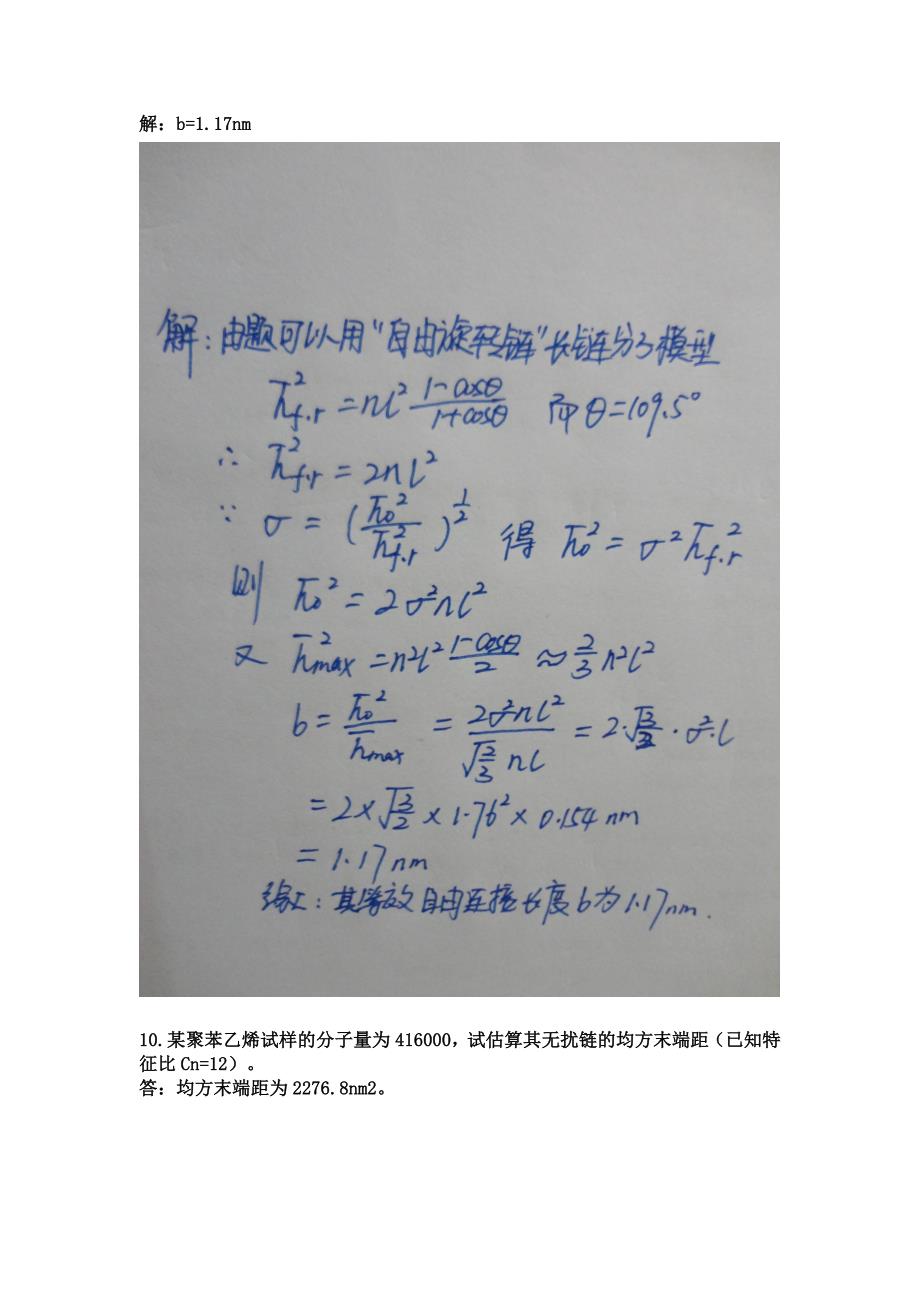 解：b=1.17nm
解：由题可以用“自由旋转链”长链分子模型
h̄²f.r = nl² (1-cosθ)/(1+cosθ) 而θ=109.5°
∴ h̄²f.r = 2nl²
∵ σ = (h̄₀²/h̄²f.r)^(1/2) 得 h̄₀² = σ²h̄f.r²
则 h̄₀² = 2σ²nl²
又 h̄²max = n²l² (1-cosθ)/2 ≈ 2/3 n²l²
b = h̄₀²/h̄max = 2σ²nl²/(√(2/3) nl) = 2·√(3/2)·σ²·l
= 2×√(3/2)×1.76²×0.154nm
= 1.17nm
综上：其等效自由连接长度b为1.17nm.
10.某聚苯乙烯试样的分子量为416000，试估算其无扰链的均方末端距（已知特
征比Cn=12）。
答：均方末端距为2276.8nm2。